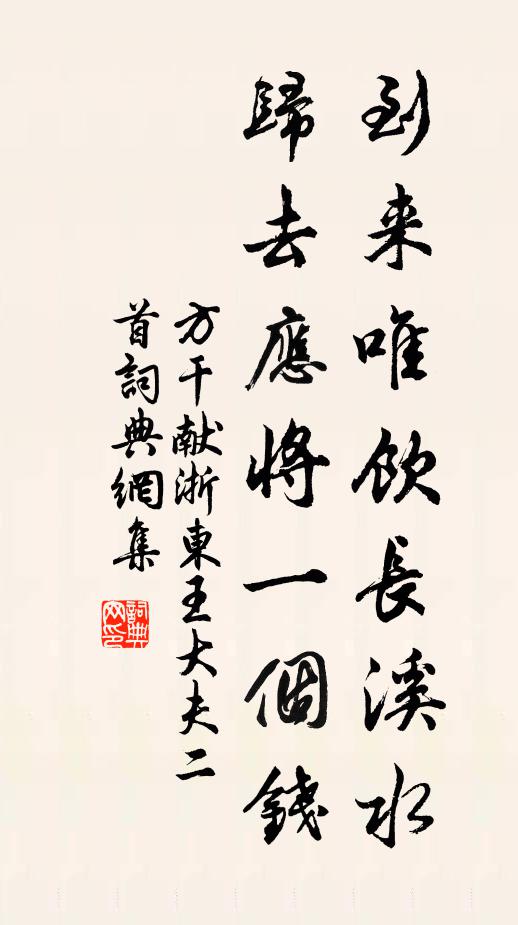 到来唯飲長溪水
歸去應將一個錢
方干献浙東王大夫二
首詞典網集
詞典
网印